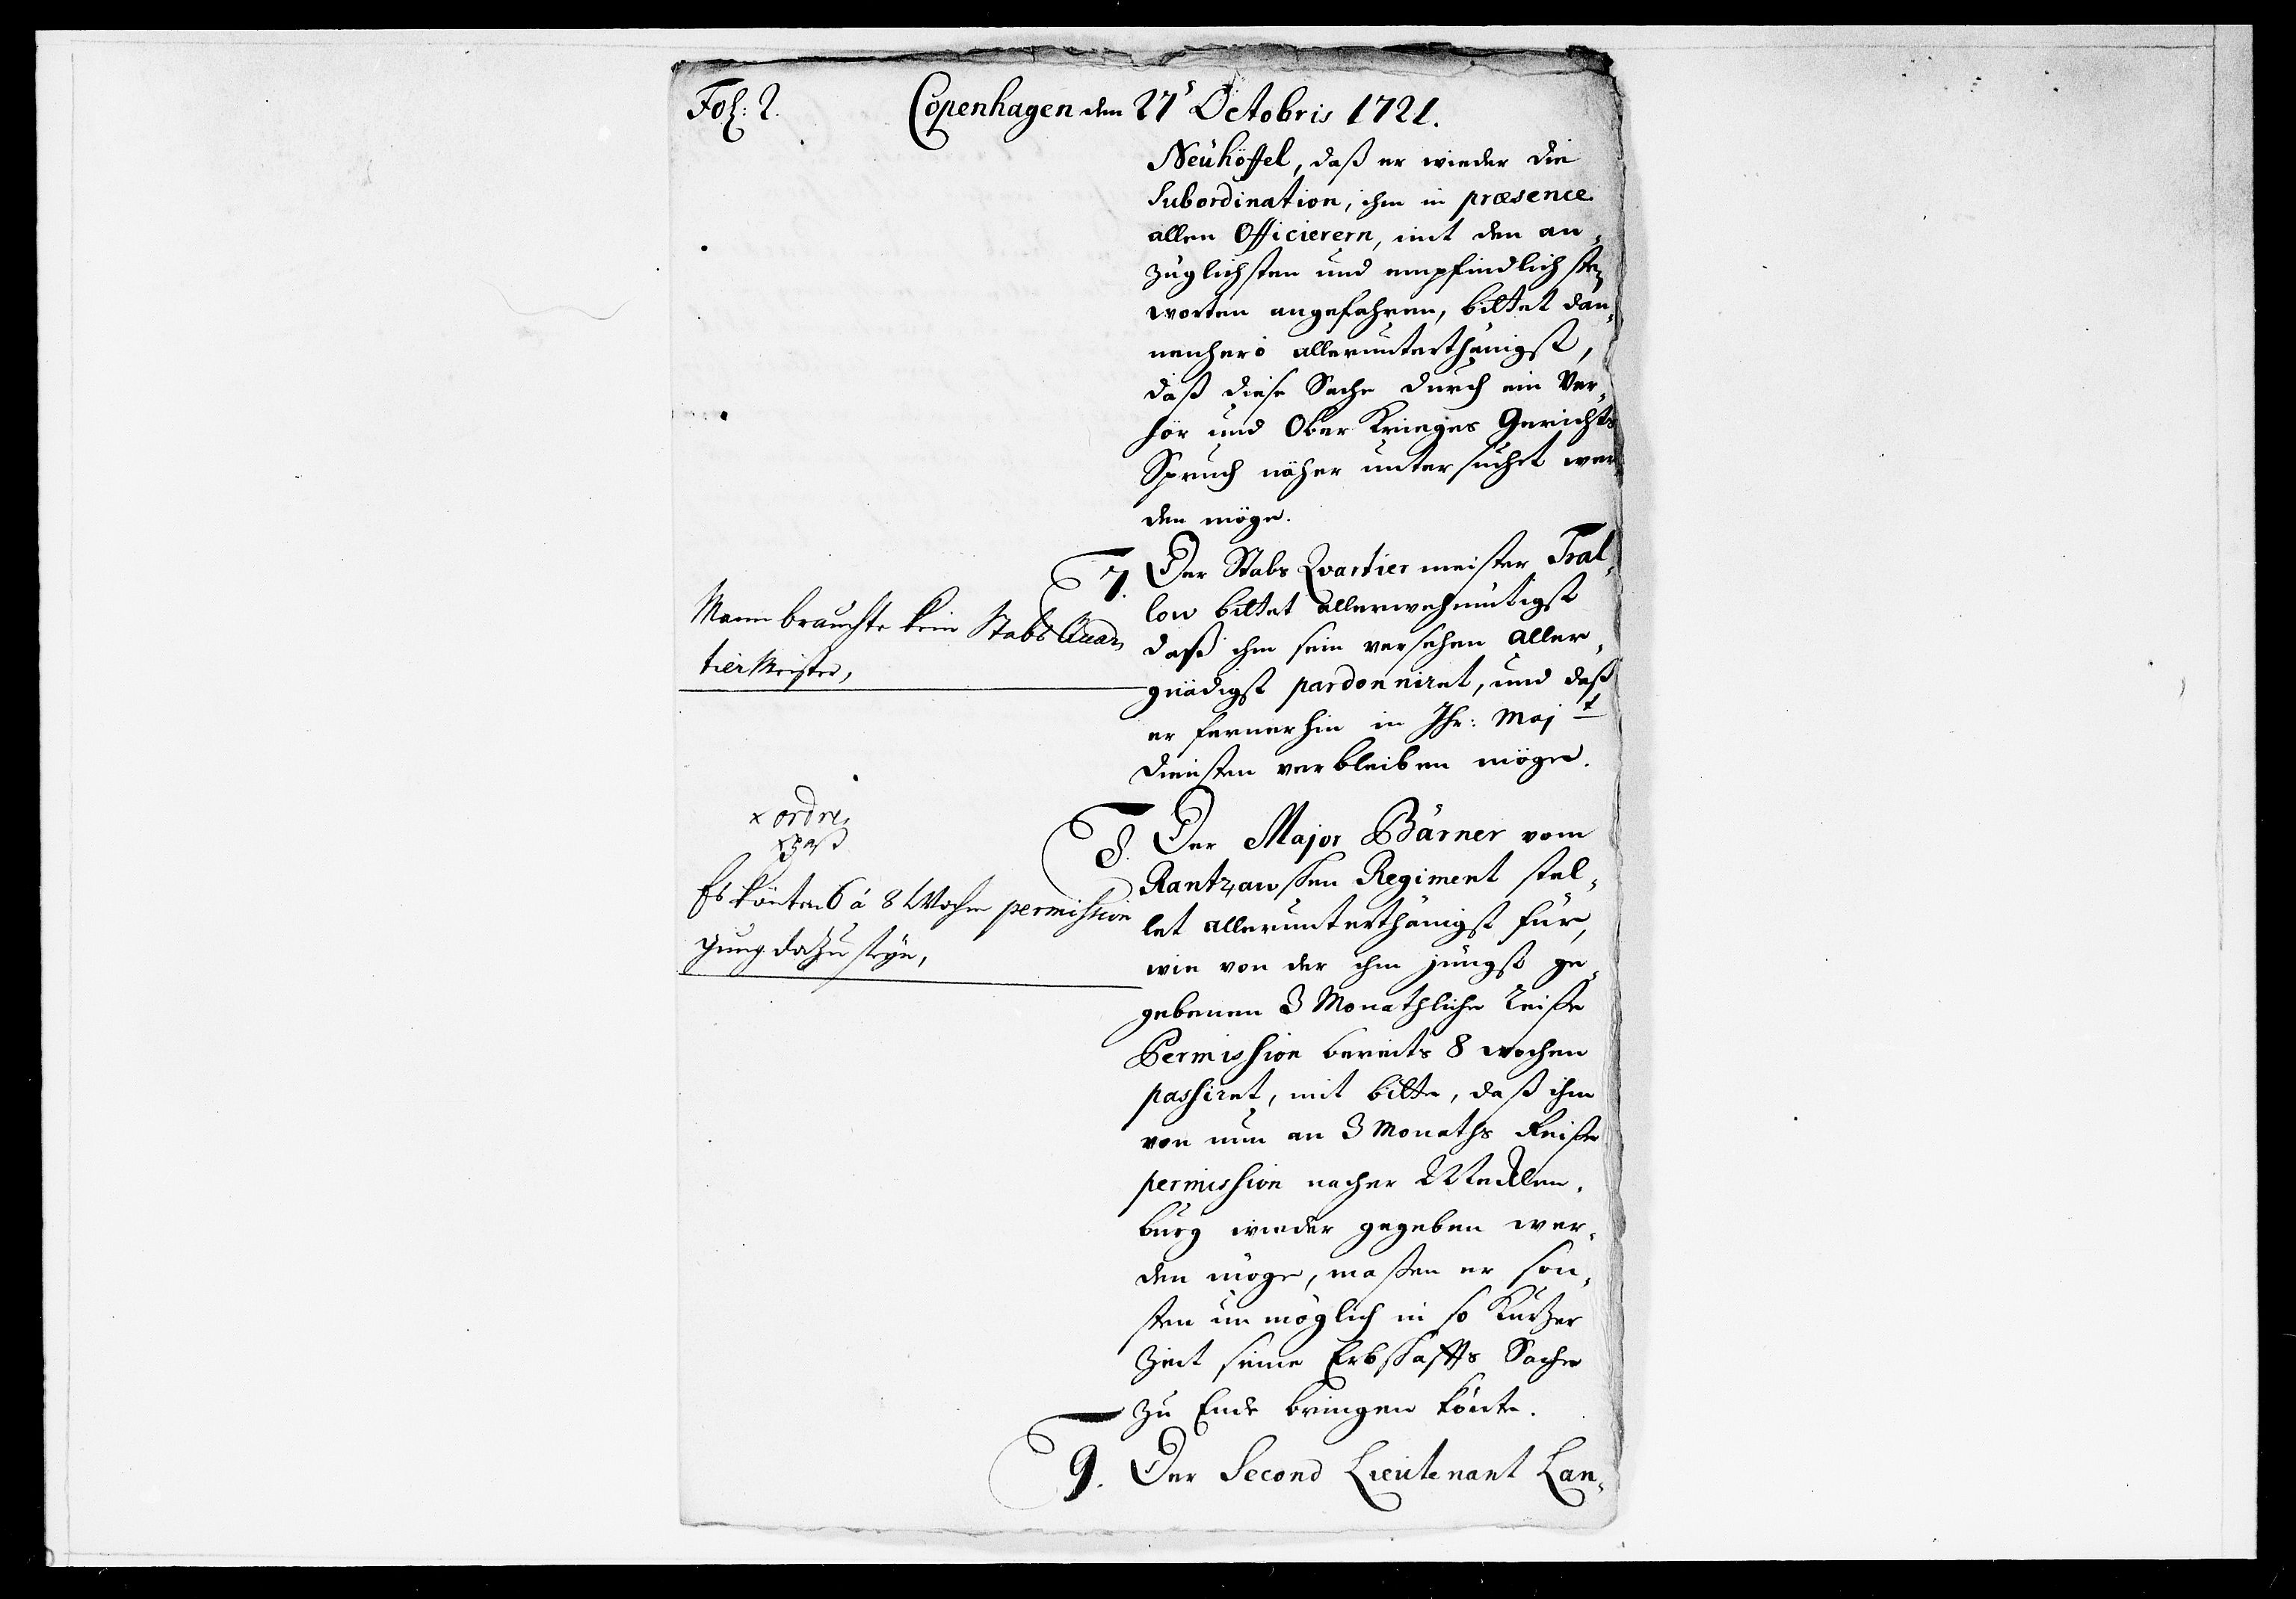 Fol: 2.
Copenhagen dem 27 Octobris 1721.
Neühöffel, daß er wieder die
Subordination, ihm in præsence
allen Officierern, mit den an-
züglichsten und empfindlichsten
worten angefahren, bittet dan-
nenhero allerunterthänigst,
daß diese Sache durch ein Ver-
hör und Ober Krieges Gerichts
Spruch näher untersuchet wer
den möge.
7. Der Stabs Qvartiermeister Tral-
low bittet allerwehmütigst
daß ihm sein versehen aller-
gnädigst pardonniret, und daß
er fernerhin in Ihr: Majt
diensten verbleiben möge.
Mann brauchte kein Stabs Quar-
tier Meister,
8. Der Major Bärner vom
Rantzawschen Regiment stel-
let allerunterthänigst für,
wie von der ihm jüngst ge-
gebenen 3 Monathliche Reiße
Permission bereits 8 wochen
passiret, mit bitte, daß ihm
von nun an 3 Monaths Reiße
permission nacher Mecklen-
burg wieder gegeben wer-
den möge, maßen er son-
sten unmöglich in so kurtzer
Zeit seine Erbschaffts Sache
zu Ende bringen könte.
x ordre,
x paß
Es könten 6 á 8 Wochen permission
gnug dazu seyn,
9. Der Second Lieutenant Lan-